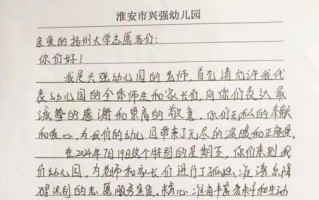 淮安市兴强幼儿园
亲爱的扬州大学志愿者们:
你们好!
我是兴强幼儿园的老师,首先请允许我代
表幼儿园的全体师生和家长们,向你们表达最
诚挚的感谢和崇高的敬意。你们无私的奉献
和爱心,为我们的幼儿园带来了无尽的温暖和正能量。
在2024年7月19日这个特别的星期五,你们来到我
们幼儿园,为老师和家长们进行了孤独
障碍识别的志愿服务宣传。精心准备